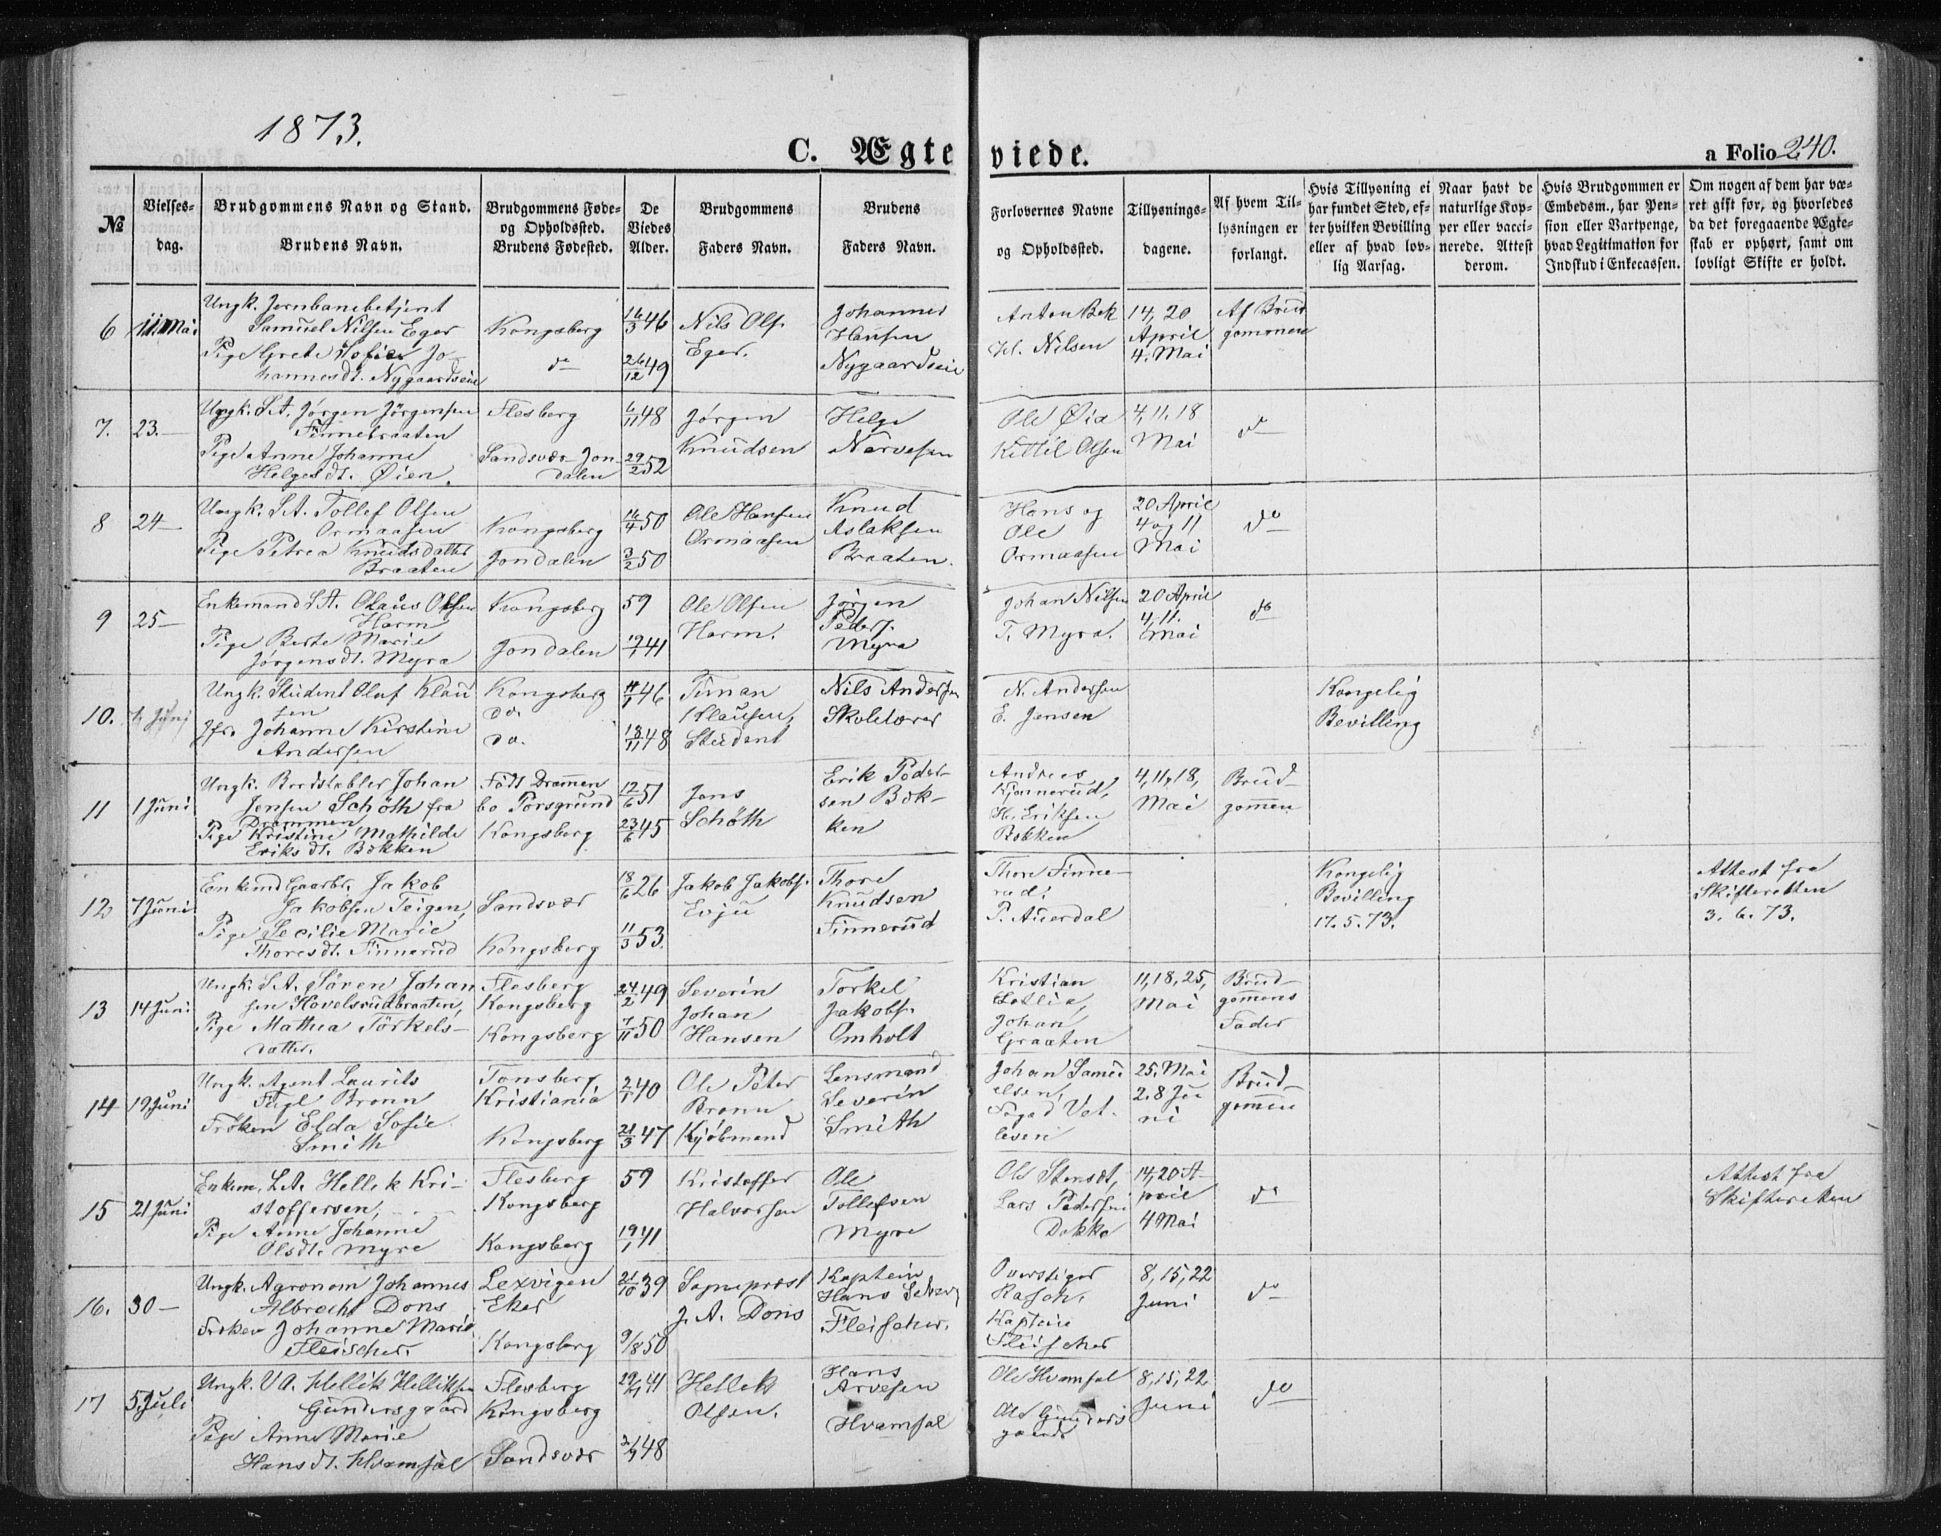 1873.
C. Ægteviede.
a Folio 240.
№
Vielses-
dag.
Brudgommens Navn og Stand.
Brudens Navn.
Brudgommens Føde-
og Opholdssted.
Brudens Fødested.
De
Viedes
Alder.
Brudgommens
Faders Navn.
Brudens
Faders Navn.
Forlovernes Navne
og Opholdssted.
Tillysnings-
dagene.
Af hvem Til-
lysningen er
forlangt.
Hvis Tillysning ei
har fundet Sted, ef-
ter hvilken Bevilling
eller af hvad lov-
lig Aarsag.
Naar havt de
naturlige Kop-
per eller vacci-
nerede. Attest
derom.
Hvis Brudgommen er
Embedsm., har Pen-
sion eller Vartpenge,
hvad Legitimation for
Indskud i Enkecassen.
Om nogen af dem har væ-
ret gift før, og hvorledes
da det foregaaende Ægte-
skab er ophørt, samt om
lovligt Skifte er holdt.
6
11 Mai
Ungk. Jernbanebetjent
Samuel Nilsen Eger
Pige Grete Sofie Jo-
hannesdt. Nygaardseie
Kongsberg
do
16/3 46
26/12 49
Nils Ols.
Eger.
Johannes
Hansen
Nygaardseie
Anton Bek
H. Nilsen
14, 20
April
4. Mai
Af Brud
gommen
7.
23.
Ungk. S.A. Jørgen Jörgensen
Finnebraaten
Pige Anne Johanne
Helgesdt. Øien.
Flesberg
Sandsvær Jon-
dalen
6/11 48
29/2 52
Jørgen
Knudsen
Helge
Narvesen
Ole Øia
Kittil Olsen
4, 11. 18
Mai
do
8
24
Ungk. S.A. Tollef Olsen
Ormaasen
Pige Petrea Knudsdatter
Braaten
Kongsberg
Jondalen
16/4 50
3/2 50
Ole Hansen
Ormaasen
Knud
Aslaksen
Braaten.
Hans og
Ole
Ormaasen
20 April
4 og 11
Mai
do
9
25
Enkemand S.A. Olaus Olsen
Harm
Pige Berte Marie
Jørgensdt. Myra
Kongsberg
Jondalen
59
19/1 41
Ole Olsen
Harm.
Jørgen
Peders.
Myra
Johan Nilsen
T. Myra.
20 April
4, 11.
Mai
do
10.
Juni
Ungk. Student Oluf Klau
sen
Jfr. Johanne Kirstine
Andersen
Kongsberg
do.
do.
46
13/11 48
Timan
Klausen,
Student
Nils Andersen
Skolelærer
N. Andersen
E. Jensen
Kongelig
Bevilling
11
1 Juni
Ungk. Bordstabler Johan
Jensen Schöth fra
Drammen
Pige Kristine Mathilde
Eriksdt. Bakken
Födt Dramen
bo Porsgrund
Kongsberg
12/6 51
23/6 45
Jens
Schöth
Erik Peder-
sen Bak-
ken
Andreas
Kjennerud,
H. Eriksen
Bakken
4, 11, 18,
Mai
Brud-
gomen
12
7 Juni
Enkemd Gaarbr. Jakob
Jakobsen Teigen,
Pige Secilie Marie
Thoresdt. Finnerud
Sandsvær
Kongsberg
18/6 26
11/3 53.
Jakob Jakobs.
Evju
Thore
Knudsen
Finnerud
Thore Finne-
rud.
P. Auerdal
Kongelig
Bevilling
17. 5. 73.
Attest fra
Skifteretten
3. 6. 73.
13
14 Juni
Ungk. S.A. Sören Johan
sen Havelsrudbraaten,
Pige Mathea Törkels-
datter.
Flesberg
Kongsberg
Kongsberg
24/2 49
7/11 50
Severin
Johan
Hansen
Torkel
Jakobs.
Omholt
Kristian
Johan
Graaten
11, 18, 25,
Mai
Brud-
gomens
Fader
14
19 Juni
Ungk. Agent Laurits
Fugl Bronn
Fröken Elda Sofie
Smith
Tonsberg
Kristiania
Kongsberg
2/1 40
21/3 47
Ole Peter
Bronn
Kjöbmand
Lensmand
Severin
Smith
Johan Samu
elsen,
Foged Vet-
lesen
25. Mai
2. 8 Ju
ni
Brud-
gomen
15
21 Juni
Enkem. S.A. Hellek Kri-
stoffersen,
Pige Anne Johanne
Olsdt. Myre
Flesberg
Kongsberg
Kongsberg
59
19/1 41
Kristoffer
Halvorsen
Ole
Tollefsen
Myre
Ole Stensdt,
Lars Pedersen
Dokka
14, 20 A-
pril
4 Mai
do
Attest fra
Skifteretten
16.
30
Ungk. Agronom Johannes
Albrecht Dons
Frøken Johanne Marie
Fleischer.
Lexvigen
Eker
Kongsberg
21/10 39
9/8 50
Sognepræst
J. A. Dons
Kaptein
Hans
Fleischer.
Overstiger
Rasch.
Kaptein
Fleischer
8, 15, 22
Juni
do
17
5 Juli
Ungk. Hellik Helliksen
Gundersgaard
Pige Anne Marie
Hansdt. Hvamsal
Flesberg
Kongsberg
Sandsvær
41
48
Hellek
Olsen.
Hans
Arvesen
Hvamsal
Ole Hvamsal
Ole Gunders
gaard
8, 15, 22
Juni
do